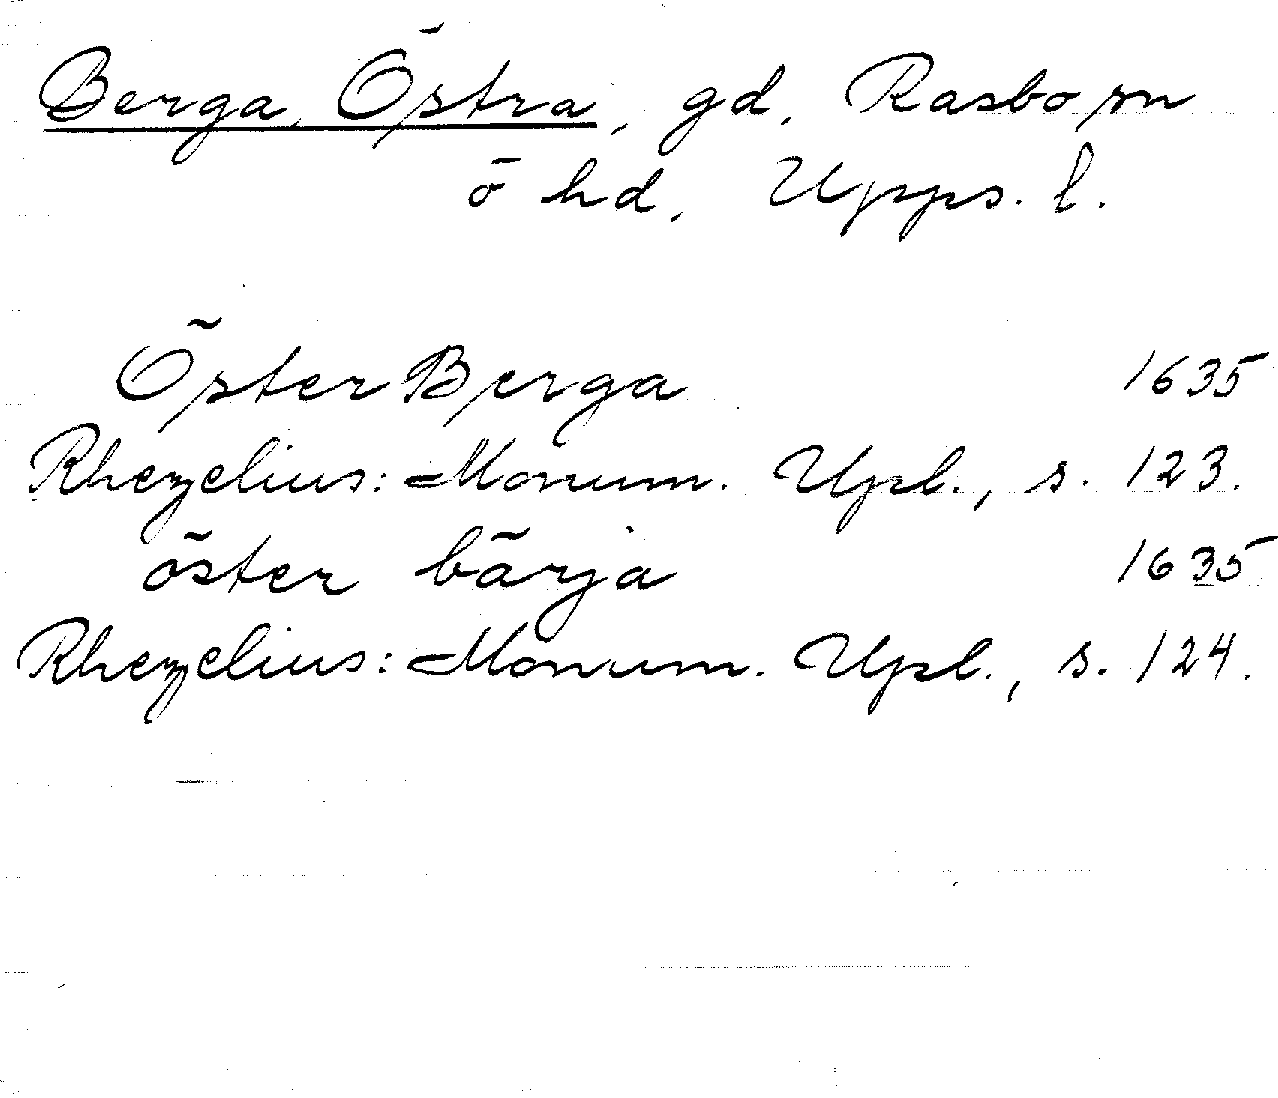 Berga, Östra, gd, Rasbo sn
ö hd, Upps. l.
Öster Berga 1635
Rhezelius: Monum. Upl., s. 123.
öster bärja 1635
Rhezelius: Monum. Upl., s. 124.